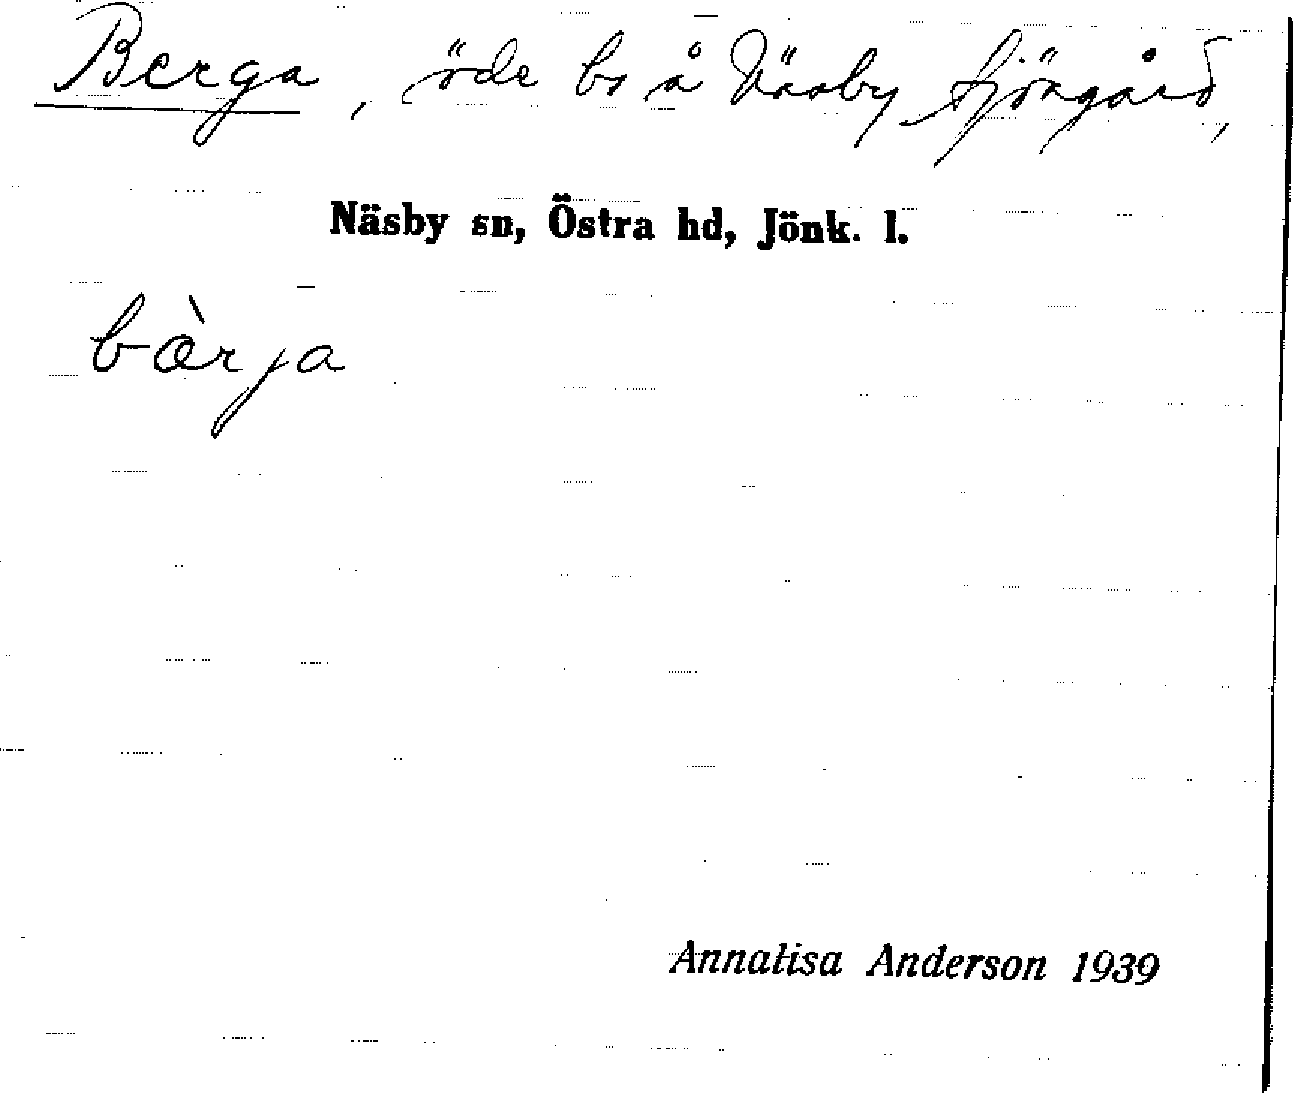 Berga, öde bs å Näsby Sjögård,
Näsby sn, Östra hd, Jönk. l.
bæ̀rja
Annalisa Anderson 1939